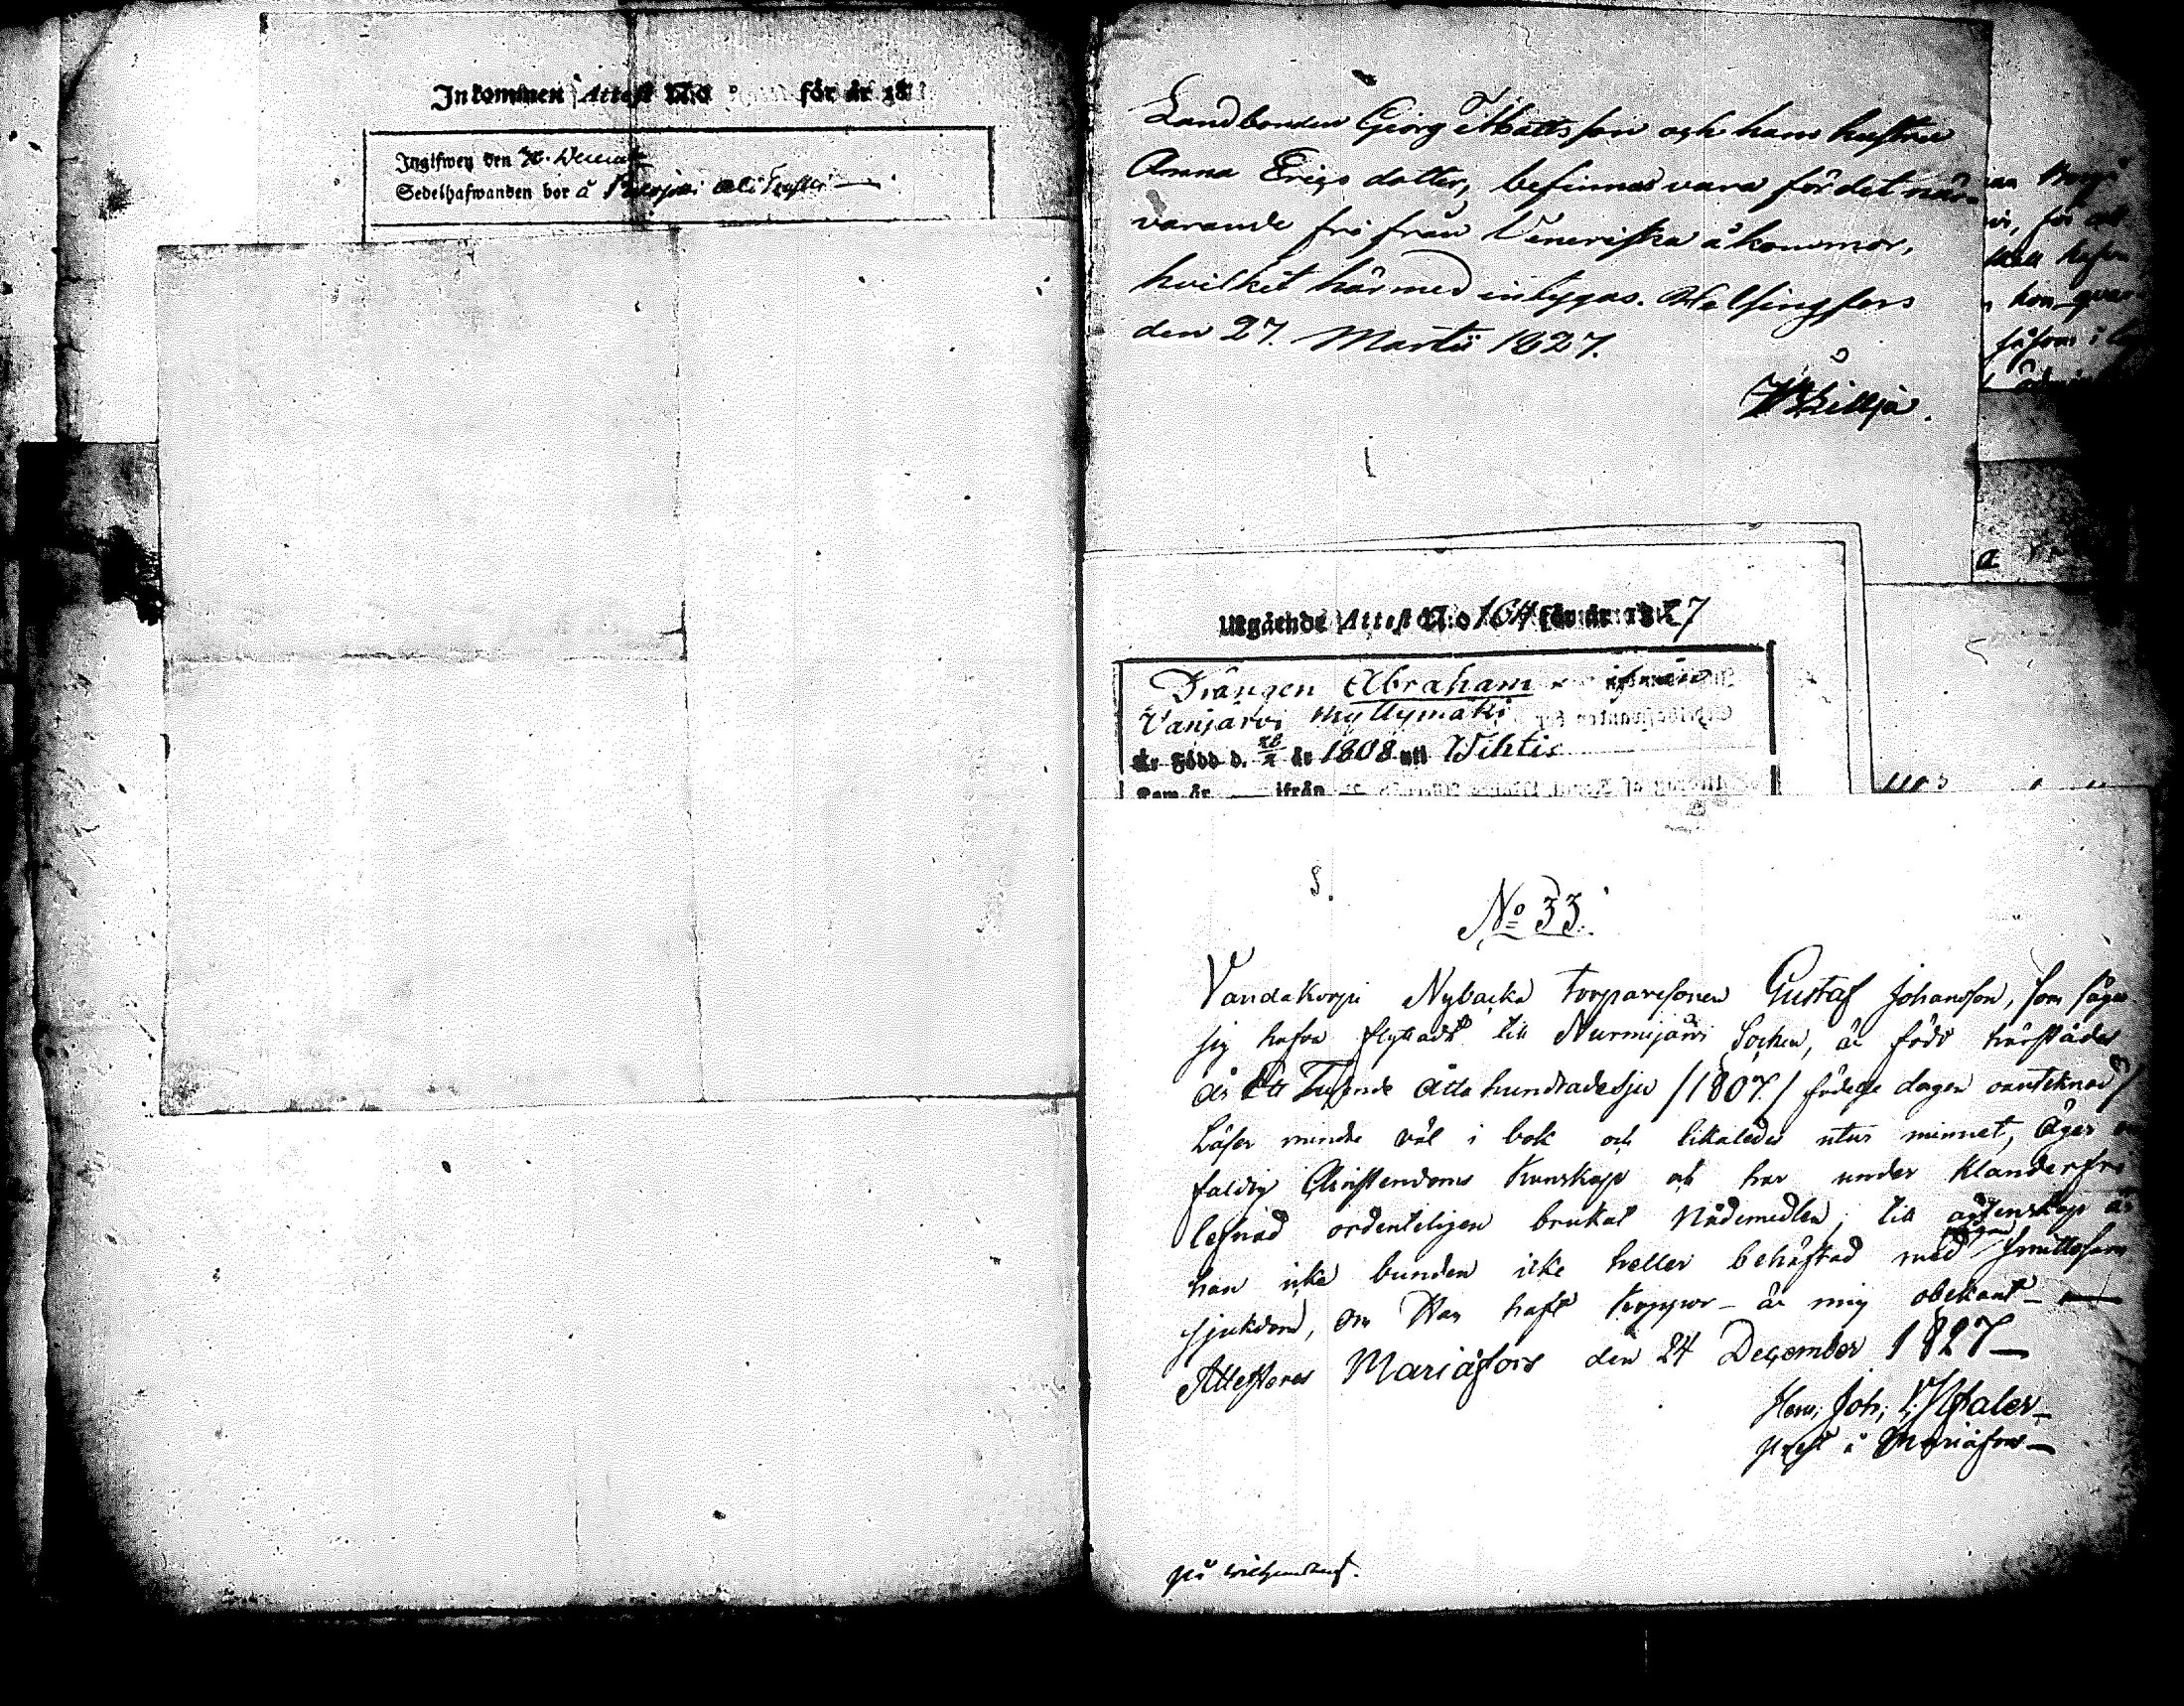 Inkommen Attest N:o för år 18
Inskrifwen den
Sedelhafwanden bor å
Landbonden Georg Mattsson och hans hustru
Anna Erics dotter, befinnas vara för det när-
varande fri från Veneriska åkommor,
hvilket härmed intygas. Helsingfors
den 27. Martii 1827.
Utgående Attest N:o 164 för år 1827
Drängen Abraham ifrån
Vanjärvi Myllymäki
är Född d. år 1808 uti Wihtis
Kom år ifrån
No 33.
Vandakorpi Nybacka torparesonen Gustaf Johansson, som säger
sig hafva flyttadt till Nurmijärvi Sochn, är född härstädes
år Ett Tusende Åttahundradesju /1807./ födelse dagen oanteknad
Läser mindre väl i bok och likaledes utur minnet, Äger en
faldig Christendoms Kunskap och har under klanderfri
lefnad ordenteligen brukat Nådemedlen; till ägtenskap är
han icke bunden icke heller behäftad med någon smittosam
sjukdom, om Han haft koppor - är mig obekant -
Attesteras Mariæfors den 24 December 1827
Prest i Mariæfors